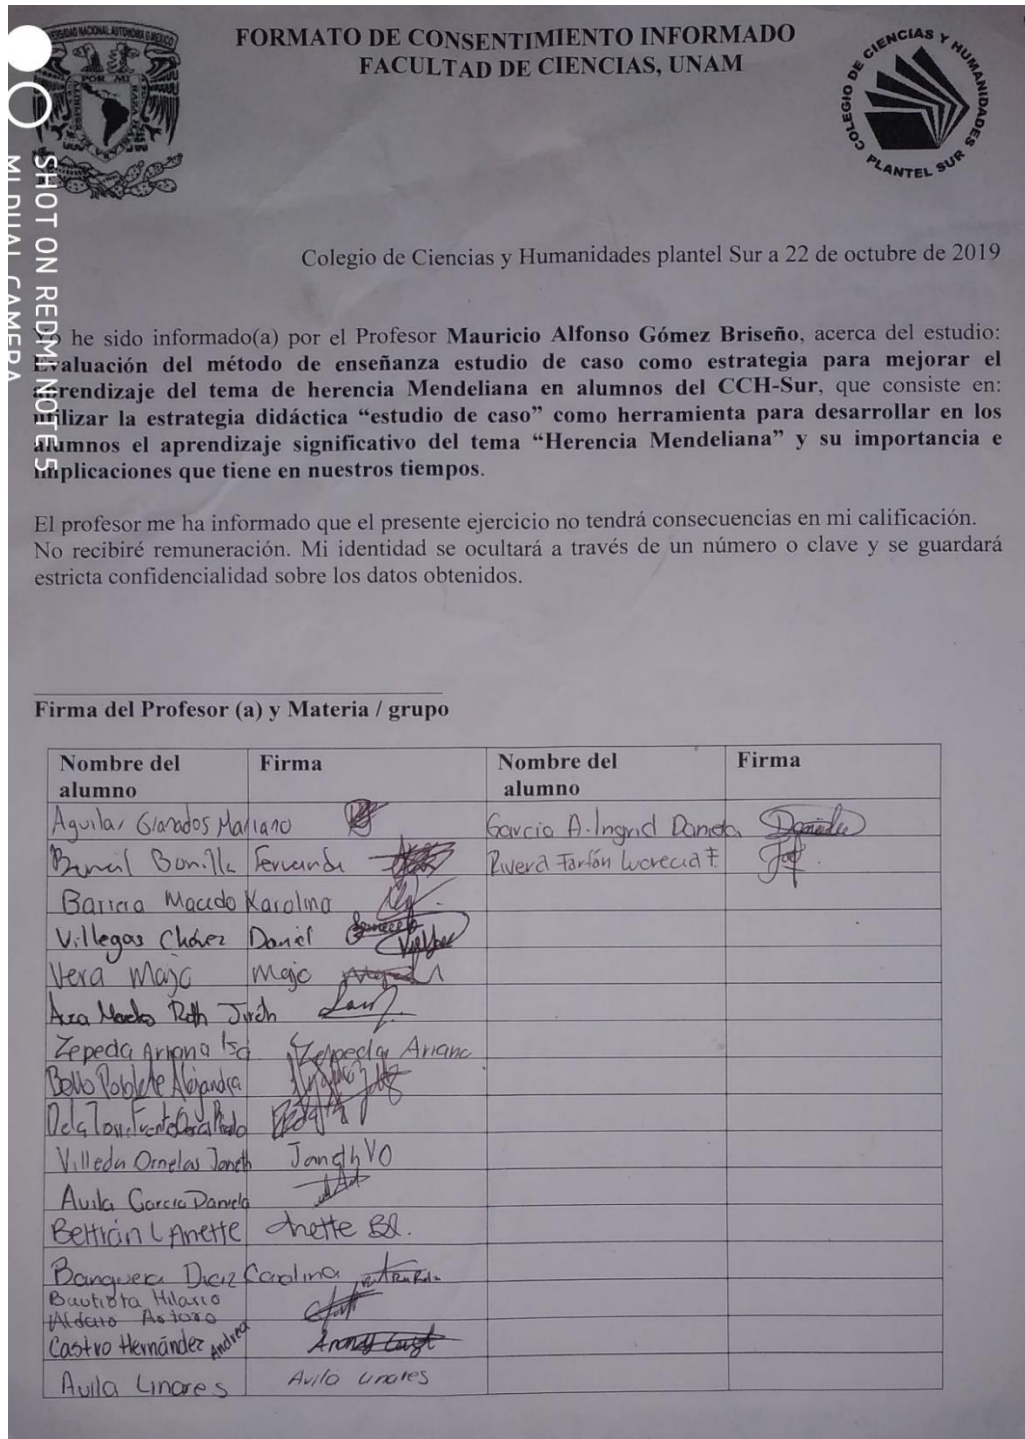 UNIVERSIDAD NACIONAL AUTONOMA DE MEXICO
POR MI RAZA
FORMATO DE CONSENTIMIENTO INFORMADO
FACULTAD DE CIENCIAS, UNAM
COLEGIO DE CIENCIAS Y HUMANIDADES
PLANTEL SUR
SHOT ON REDMI NOTE 5
MI DUAL CAMERA
Colegio de Ciencias y Humanidades plantel Sur a 22 de octubre de 2019
Yo he sido informado(a) por el Profesor Mauricio Alfonso Gómez Briseño, acerca del estudio:
Evaluación del método de enseñanza estudio de caso como estrategia para mejorar el
aprendizaje del tema de herencia Mendeliana en alumnos del CCH-Sur, que consiste en:
utilizar la estrategia didáctica “estudio de caso” como herramienta para desarrollar en los
alumnos el aprendizaje significativo del tema “Herencia Mendeliana” y su importancia e
implicaciones que tiene en nuestros tiempos.
El profesor me ha informado que el presente ejercicio no tendrá consecuencias en mi calificación.
No recibiré remuneración. Mi identidad se ocultará a través de un número o clave y se guardará
estricta confidencialidad sobre los datos obtenidos.
Firma del Profesor (a) y Materia / grupo
Nombre del alumno Firma Nombre del alumno Firma
Aguilar Granados Mariano Garcia A. Ingrid Daniela
Bonilla Fernanda Rivera Farfán Lucrecia F.
Barrera Macedo Karolina
Villegas Chávez Daniel
Vera Majo Majo
Ruth
Zepeda Ariana Isa Zepeda Ariana
Bello Poblete Alejandra
De la Torre
Villeda Ornelas Janeth Janeth VO
Avila Garcia Daniela
Beltrán L Anette Anette BL.
Banquera Diaz Carolina
Bautista Hilario
Arturo
Castro Hernández Andrea
Avila Linares Avila Linares